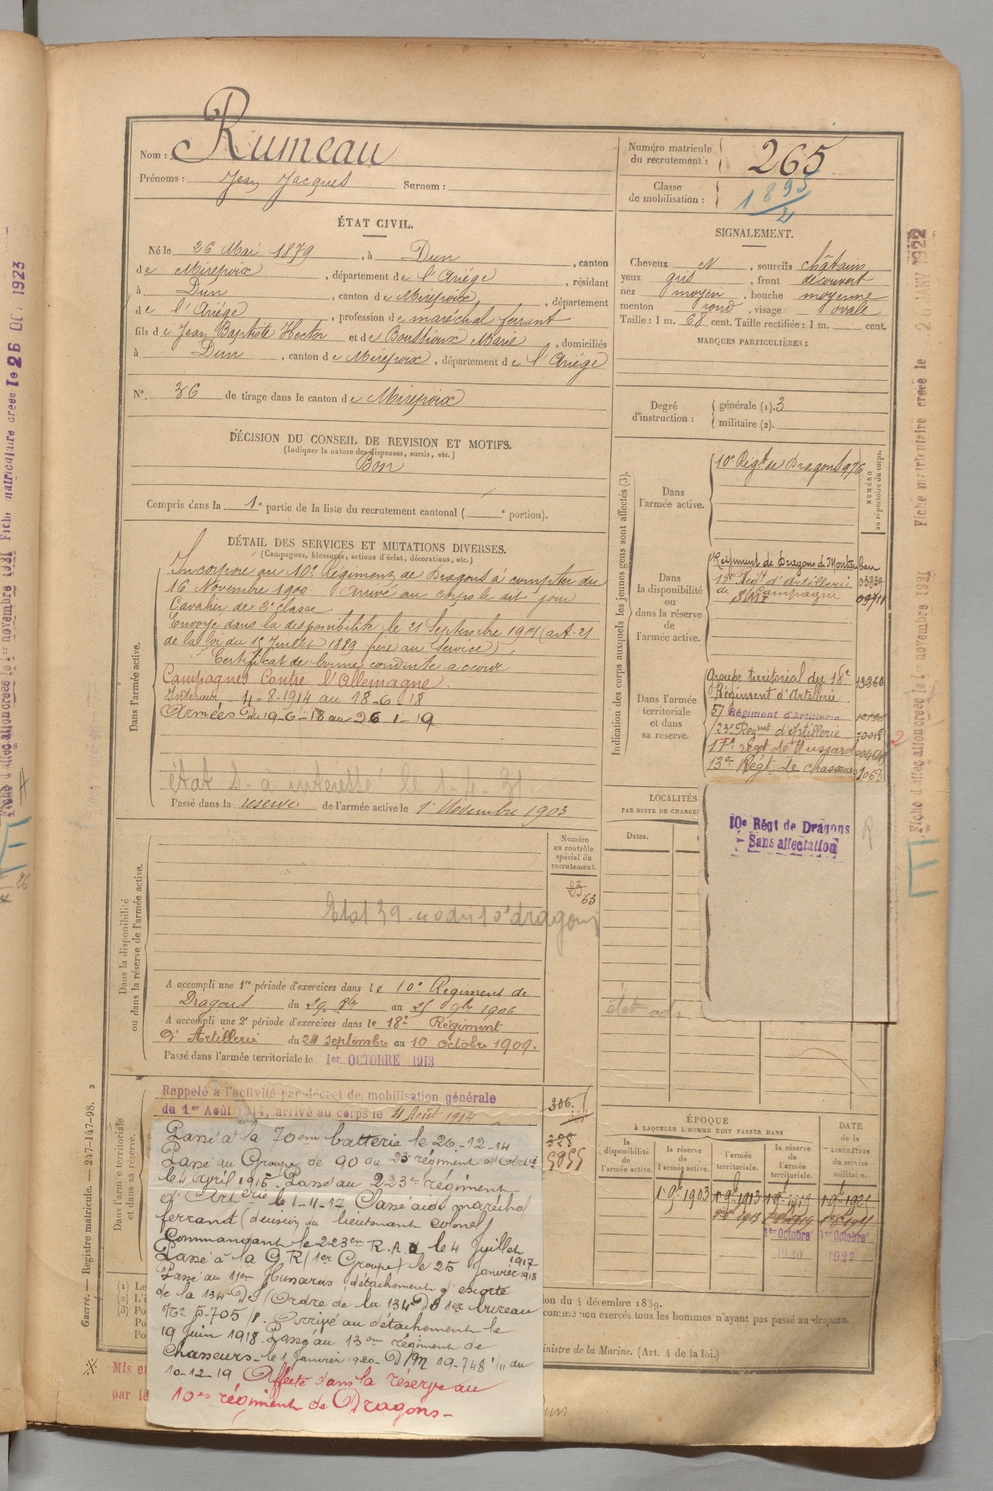 Nom : Rumeau
Prénoms : Jean Jacques Surnom :
Numéro matricule du recrutement : 265
Classe de mobilisation : 1895/2
ÉTAT CIVIL.
Né le 26 Mai 1879, à Dun, canton
de Mirepoix, département de l'Ariége, résidant
à Dun, canton de Mirepoix, département
de l'Ariége, profession de maréchal ferrant
fils de Jean Baptiste Hector et de Boussioux Marie, domiciliés
à Dun, canton de Mirepoix, département de l'Ariége
N° 36 de tirage dans le canton de Mirepoix
SIGNALEMENT.
Cheveux N, sourcils châtains
yeux gris, front découvert
nez moyen, bouche moyenne
menton rond, visage ovale
Taille : 1 m. 68 cent. Taille rectifiée : 1 m. cent.
MARQUES PARTICULIÈRES :
Degré d'instruction : générale (1). 3
militaire (2).
DÉCISION DU CONSEIL DE REVISION ET MOTIFS.
(Indiquer la nature des dispenses, sursis, etc.)
Bon
Compris dans la 1e partie de la liste du recrutement cantonal ( e portion).
DÉTAIL DES SERVICES ET MUTATIONS DIVERSES.
(Campagnes, blessures, actions d'éclat, décorations, etc.)
Dans l'armée active.
Incorporé au 10e Régiment de Dragons à compter du
16 Novembre 1900 Arrivé au corps le dit jour
Cavalier de 2e classe
Envoyé dans la disponibilité le 21 Septembre 1901 (art. 21
de la loi du 15 Juillet 1889 frère au Service)
Certificat de bonne conduite accordé
Campagne Contre l'Allemagne.
Intérieur 4-8-1914 au 18-6-18
Armées du 19-6-18 au 26 1-19
Passé dans la réserve de l'armée active le 1er Novembre 1903
Indication des corps auxquels les jeunes gens sont affectés (3).
NUMÉRO au répertoire du corps.
Dans l'armée active.
10e Régt de Dragons 976
Dans la disponibilité ou dans la réserve de l'armée active.
Régiment de Dragons à Montauban
18e Régt d'Artillerie
de Campagne
Dans l'armée territoriale et dans sa réserve.
Groupe territorial du 18e
Régiment d'Artillerie
57 Régiment d'Artillerie
23e Régiment d'Artillerie
11e régt de Hussards
13e Régt de chasseurs
LOCALITÉS
Dates.
10e Régt de Dragons
Sans affectation
R
Dans la disponibilité ou dans la réserve de l'armée active.
Numéro au contrôle spécial du recrutement.
63
A accompli une 1re période d'exercices dans le 10e Régiment de
Dragons du 29 8bre au 25 9bre 1906
A accompli une 2e période d'exercices dans le 18e Régiment
d'Artillerie du 24 septembre au 10 octobre 1909.
Passé dans l'armée territoriale le 1er OCTOBRE 1913
Dans l'armée territoriale et dans sa réserve.
Rappelé à l'activité par décret de mobilisation générale
du 1er Août 1914, arrivé au corps le 4 Août 1914
306.
325
Passé à la 70eme batterie le 26-12-14
Passé au Groupe de 90 du 23 régiment d'Art.
le 4 avril 1915. Passé au 223e régiment
d'Arterie le 1-11-17 Passé aide maréchal
ferrand (decision du lieutenant colonel
Commandant le 223em R.A. le 4 Juillet 1917
Passé à la G R (1er Groupe) le 25 janvier 1918
Passé au 11em Hussards détachement d'escorte
de la 134 DI (Ordre de la 134 DI 1er bureau
N° P-705/P. Arrivé au détachement le
19 juin 1918. Passé au 13em régiment de
Chasseurs le 1 janvier 1920 D/M 19-748 1/11 du
10-12-19 Affecté dans la réserve au
10es régiment de Dragons
ÉPOQUE
À LAQUELLE L'HOMME DOIT PASSER DANS
la disponibilité de l'armée active.
la réserve de l'armée active.
l'armée territoriale.
la réserve de l'armée territoriale.
DATE de la LIBÉRATION du service militaire.
1er 9bre 1903
1er Octobre
1er Octobre
1927
Guerre. — Registre matricule. — 247-147-98. 2
ministre de la Marine. (Art. 4 de la loi.)